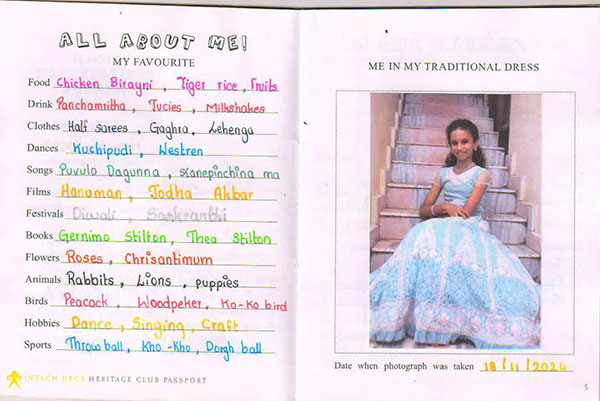 ALL ABOUT ME!
MY FAVOURITE
Food Chicken Birayni , Tiger rice , Fruits
Drink Panchamritha , Jucies , Milkshakes
Clothes Half sarees , Gaghra , Lehenga
Dances Kuchipudi , Westren
Songs Puvulo Dagunna , Kanepinchina ma
Films Hanuman , Jodha Akbar
Festivals Diwali , Sankranthi
Books Gernimo Stilton , Thea Stilton
Flowers Roses , Chrisantimum
Animals Rabbits , Lions , puppies
Birds Peacock , Woodpeker , Ko-Ko bird
Hobbies Dance , Singing , Craft
Sports Throw ball , Kho-Kho , Dorgh ball
INTACH HECS HERITAGE CLUB PASSPORT
ME IN MY TRADITIONAL DRESS
Date when photograph was taken 18/11/2024
5